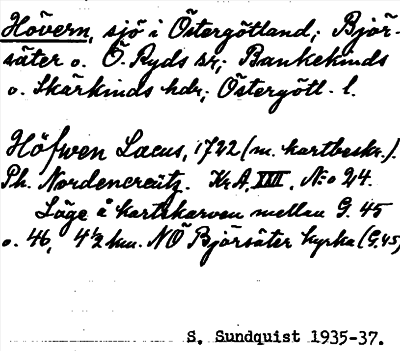 Hövern, sjö i Östergötland; Björ-
säter o. Ö. Ryds sr; Bankekinds
o. Skärkinds hdr; Östergötl. l.
Höfwen Lacus, 1722 (m. kartbeskr.).
Ph. Nordencreütz. Kr.A. XVII, N:o 24.
Läge å kartskarven mellan G. 45
o. 46, 4½ km. NÖ Björsäter kyrka (G. 45)
S. Sundquist 1935-37.